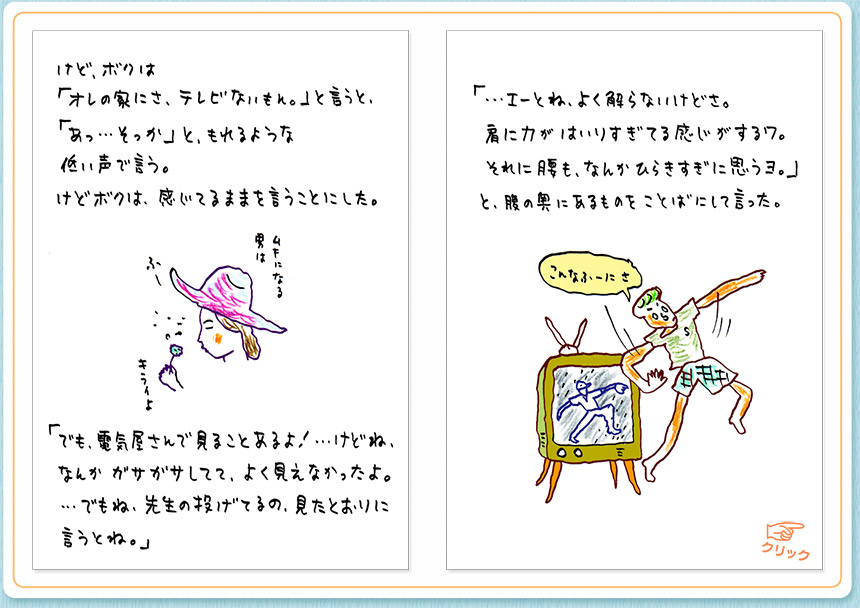 けど、ボクは
「オレの家にさ、テレビないもん。」と言うと、
「あっ…そっか」と、もれるような
低い声で言う。
けどボクは、感じてるままを言うことにした。
ムキになる
男は
ふー
きライよ
「でも、電気屋さんで見ることあるよ!…けどね、
なんか ガサガサしてて、よく見えなかったよ。
…でもね、先生の投げてるの、見たとおりに
言うとね。」
「…エーとね、よく解らないけどさ。
肩に力がはいりすぎてる感じがするワ。
それに腰も、なんかひらきすぎに思うヨ。」
と、腹の奥にあるものをことばにして言った。
こんなふーにさ
S
クリック